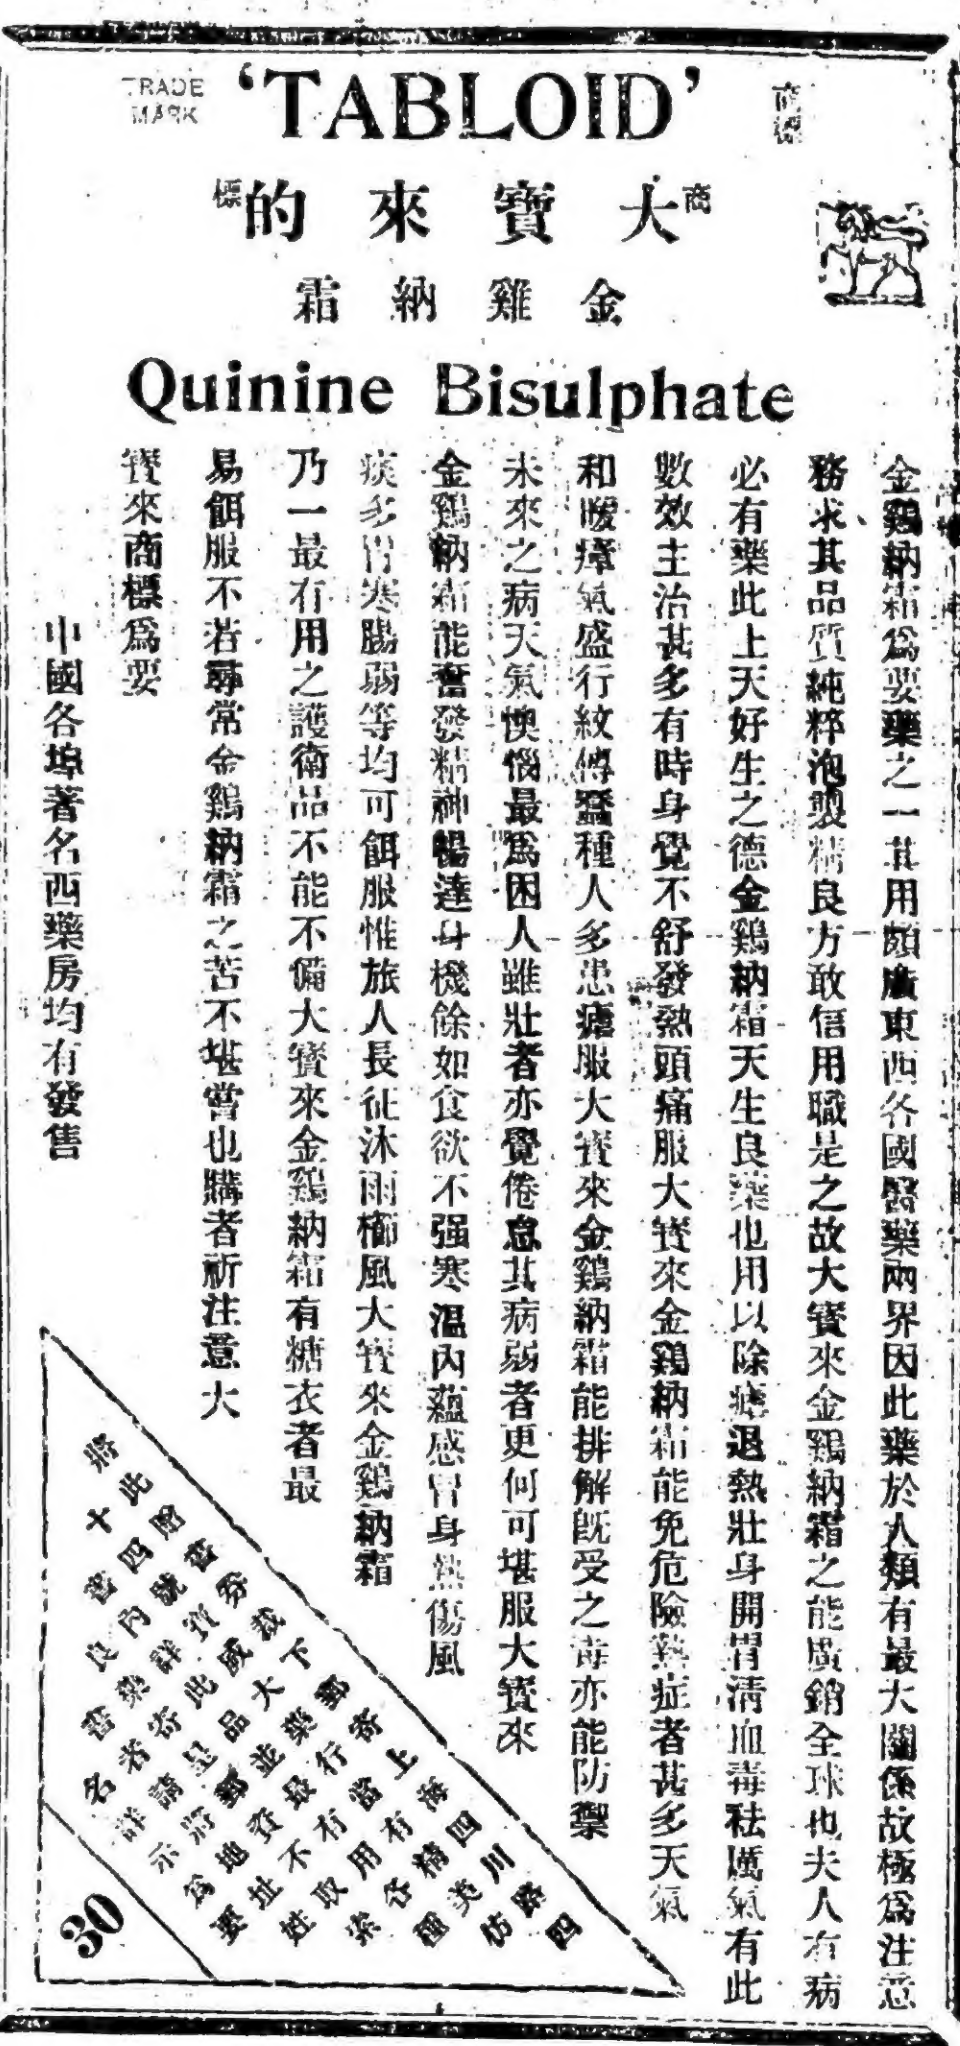 TRADE
MARK
'TABLOID'
商標
商大寶來的標
金雞納霜
Quinine Bisulphate
金鷄納霜爲要藥之一其用頗廣東西各國醫藥兩界因此藥於人類有最大關係故極爲注意
務求其品質純粹泡製精良方敢信用職是之故大寶來金鷄納霜之能廣銷全球也夫人有病
必有藥此上天好生之德金鷄納霜天生良藥也用以除瘧退熱壯身開胃清血毒祛厲氣有此
數效主治甚多有時身覺不舒發熱頭痛服大寶來金鷄納霜能免危險熱症者甚多天氣
和暖瘴氣盛行蚊傳蠶種人多患瘧服大寶來金鷄納霜能排解旣受之毒亦能防禦
未來之病天氣懊惱最爲困人雖壯者亦覺倦怠其病弱者更何可堪服大寶來
金鷄納霜能奮發精神暢達身機餘如食欲不强寒溫內蘊感冒身熱傷風
痰多胃寒腸弱等均可餌服惟旅人長征沐雨櫛風大寶來金鷄納霜
乃一最有用之護衛品不能不備大寶來金鷄納霜有糖衣者最
易餌服不若尋常金鷄納霜之苦不堪嘗也購者祈注意大
寶來商標爲要
中國各埠著名西藥房均有發售
將此圖書券裁下郵寄上海四川路四
十四號寶威大藥行當有精美仿
單內詳此品並最有用各種
良藥寄呈郵資不取索
書者請將地址姓
名詳示爲要
30